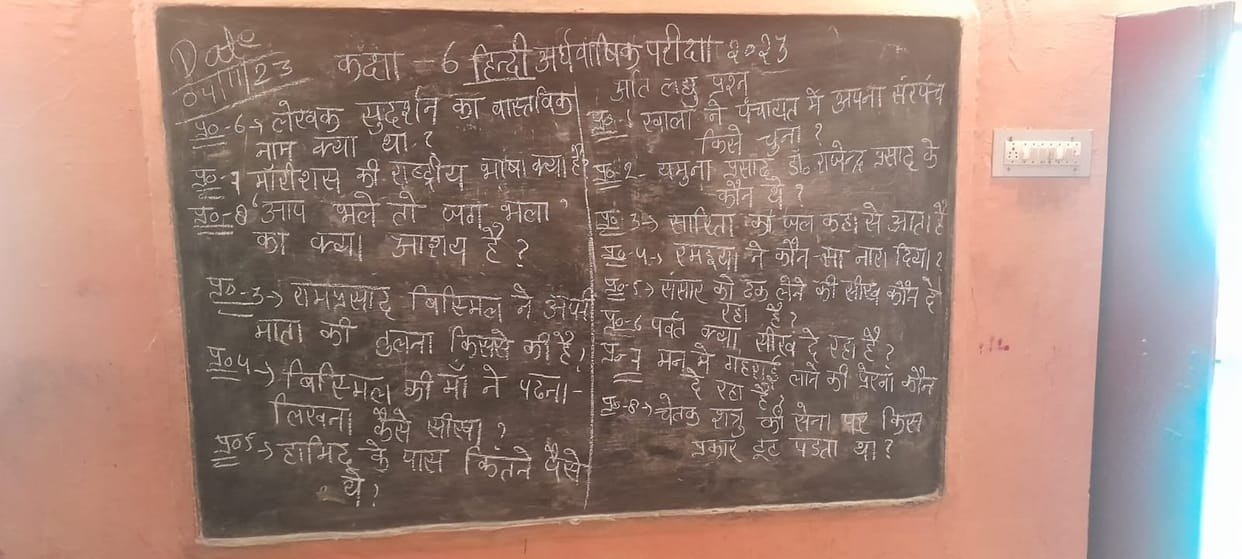 Date
04/11/23
कक्षा - 6 हिन्दी अर्धवार्षिक परीक्षा २०२3
प्र०-6→ लेखक सुदर्शन का वास्तविक
नाम क्या था ?
प्र०-7 मॉरीशस की राष्ट्रीय भाषा क्या है?
प्र०-8 'आप भले तो जग भला'
का क्या आशय है ?
प्र०-3→ रामप्रसाद बिस्मिल ने अपनी
माता की तुलना किससे की है?
प्र०4→ बिस्मिल की माँ ने पढना-
लिखना कैसे सीखा ?
प्र०5→ हामिद के पास कितने पैसे
थे ?
अति लघु प्रश्न
प्र०-1 ग्वालों ने पंचायत में अपना सरपंच
किसे चुना ?
प्र०-2- यमुना प्रसाद डॉ० राजेन्द्र प्रसाद के
कौन थे ?
प्र०-3→ सारिता का जल कहा से आता है
प्र०-4→ रमइया ने कौन-सा नारा दिया ?
प्र०-5→ संसार को ढक लेने की सीख कौन दे
रहा है ?
प्र०-6 पर्वत क्या सीख दे रहा है ?
प्र०-7 मन में गहराई लाने की प्रेरणा कौन
दे रहा है ?
प्र०-8→ चेतक शत्रु की सेना पर किस
प्रकार टूट पडता था ?